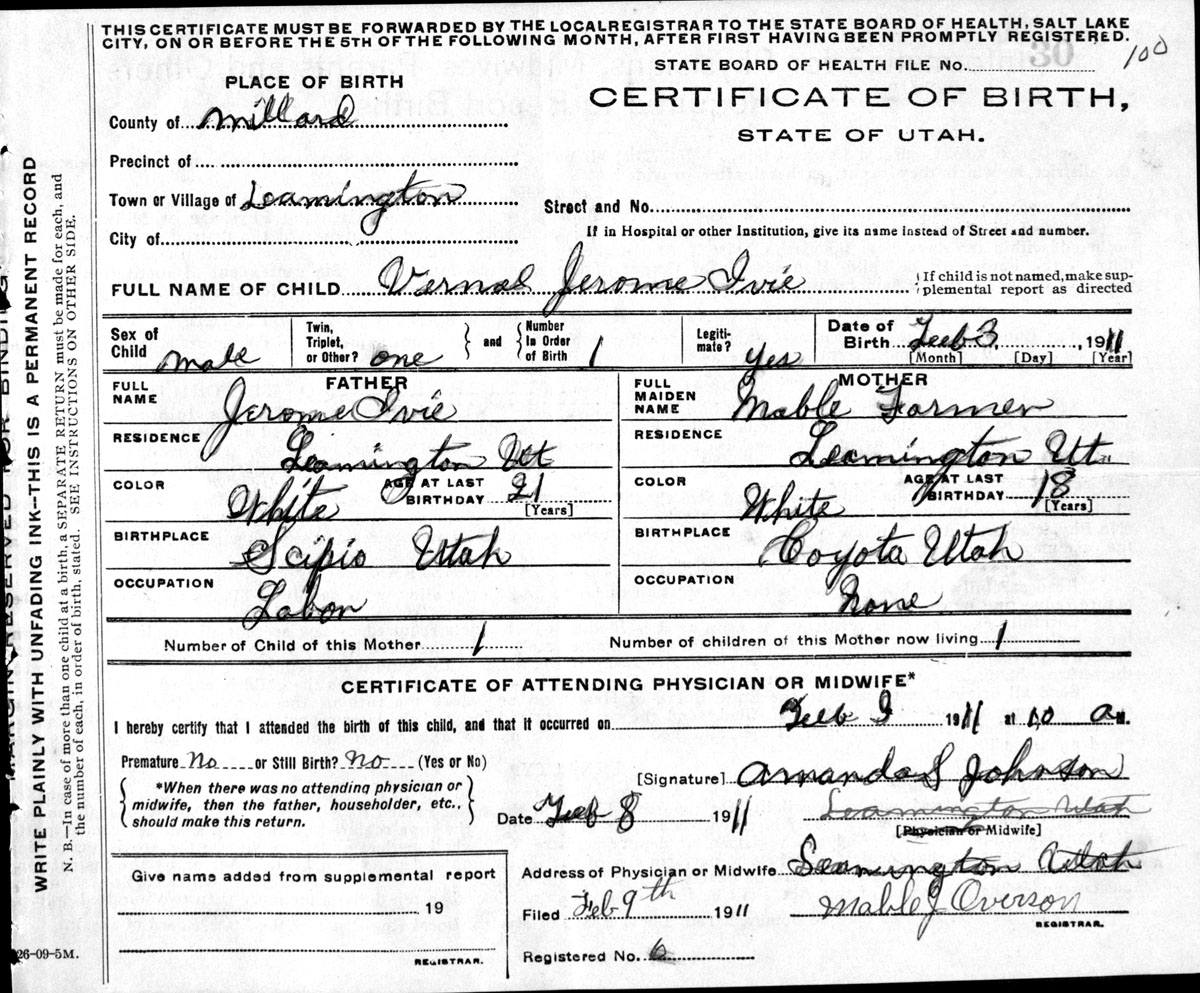 THIS CERTIFICATE MUST BE FORWARDED BY THE LOCAL REGISTRAR TO THE STATE BOARD OF HEALTH, SALT LAKE
CITY, ON OR BEFORE THE 5TH OF THE FOLLOWING MONTH, AFTER FIRST HAVING BEEN PROMPTLY REGISTERED.
STATE BOARD OF HEALTH FILE No. 100
PLACE OF BIRTH
CERTIFICATE OF BIRTH,
STATE OF UTAH.
County of Millard
Precinct of
Town or Village of Leamington
Street and No.
City of
If in Hospital or other Institution, give its name instead of Street and number.
FULL NAME OF CHILD Vernal Jerome Ivie
If child is not named, make sup-
plemental report as directed
Sex of Child male
Twin, Triplet, or Other? one
and
Number In Order of Birth 1
Legiti-mate? Yes
Date of Birth Feb 3 1911
[Month] [Day] [Year]
FATHER
FULL NAME Jerome Ivie
RESIDENCE Leamington Ut
COLOR White AGE AT LAST BIRTHDAY 21 [Years]
BIRTHPLACE Scipio Utah
OCCUPATION Labor
MOTHER
FULL MAIDEN NAME Mable Farmer
RESIDENCE Leamington Ut
COLOR White AGE AT LAST BIRTHDAY 18 [Years]
BIRTHPLACE Coyota Utah
OCCUPATION None
Number of Child of this Mother 1
Number of children of this Mother now living 1
CERTIFICATE OF ATTENDING PHYSICIAN OR MIDWIFE*
I hereby certify that I attended the birth of this child, and that it occurred on Feb 3 1911 at 10 a M.
Premature No or Still Birth? No (Yes or No)
*When there was no attending physician or
midwife, then the father, householder, etc.,
should make this return.
[Signature] Amanda S Johnson
Date Feb 8 1911
Leamington Utah
[Physician or Midwife]
Address of Physician or Midwife Leamington Utah
Give name added from supplemental report
19
REGISTRAR.
Filed Feb 9th 1911
Mable J Overson
REGISTRAR.
Registered No. 6
26-09-5M.
MARGIN RESERVED FOR BINDING
WRITE PLAINLY WITH UNFADING INK—THIS IS A PERMANENT RECORD
N. B.—In case of more than one child at a birth, a SEPARATE RETURN must be made for each, and
the number of each, in order of birth, stated. SEE INSTRUCTIONS ON OTHER SIDE.